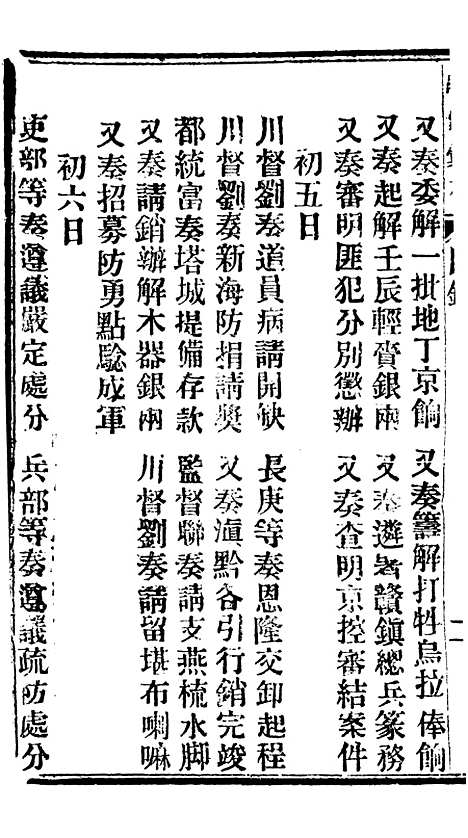 又奏委解一批地丁京餉　又奏籌解打牲烏拉俸餉
又奏起解壬辰輕賫銀兩　又奏遴署贛鎮總兵篆務
又奏審明匪犯分別懲辦　又奏查明京控審結案件
初五日
川督劉奏道員病請開缺　長庚等奏恩隆交卸起程
川督劉奏新海防捐請獎　又奏滇黔各引行銷完竣
都統富奏塔城提備存款　監督聯奏請支燕梳水脚
又奏請銷辦解木器銀兩　川督劉奏請留堪布喇嘛
又奏招募防勇點驗成軍
初六日
吏部等奏遵議嚴定處分　兵部等奏遵議疏防處分